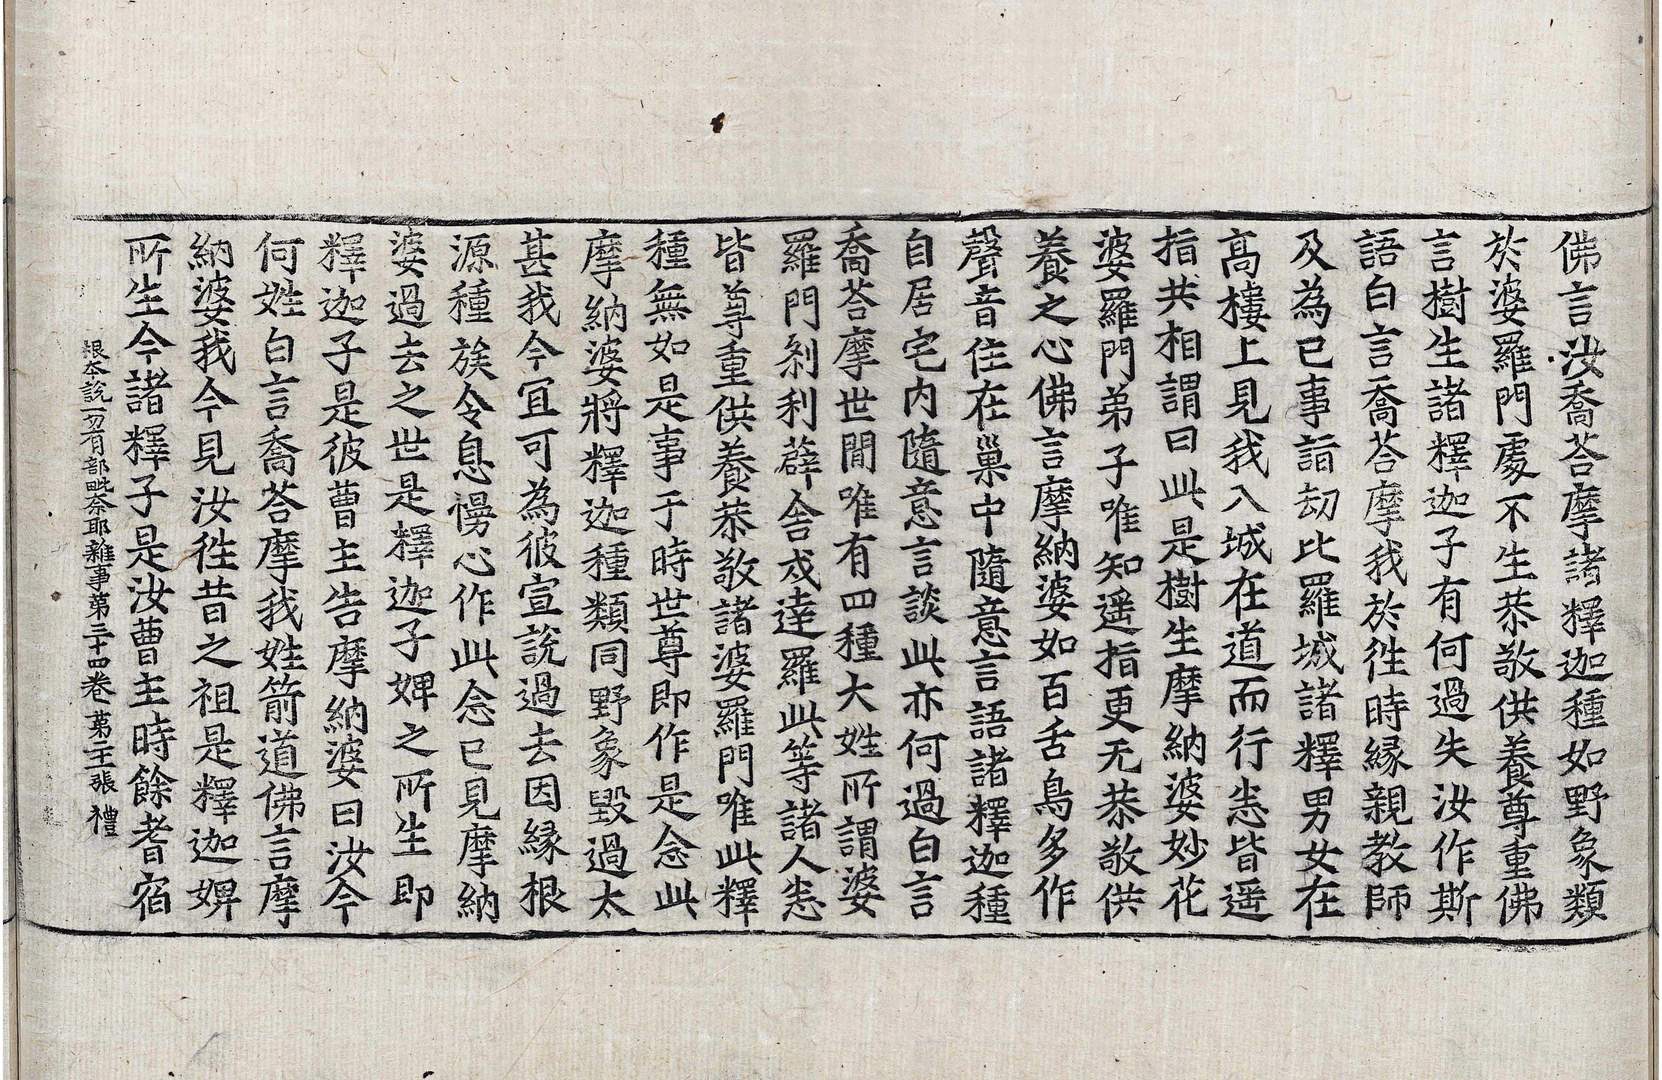 佛言汝喬荅摩諸釋迦種如野象類
於婆羅門處不生恭敬供養尊重佛
言樹生諸釋迦子有何過失汝作斯
語白言喬荅摩我於徃時緣親教師
及為己事詣劫比羅城諸釋男女在
高樓上見我入城在道而行悉皆遥
指共相謂曰此是樹生摩納婆妙花
婆羅門弟子唯知遥指更无恭敬供
養之心佛言摩納婆如百舌鳥多作
聲音住在巢中隨意言語諸釋迦種
自居宅内隨意言談此亦何過白言
喬荅摩世閒唯有四種大姓所謂婆
羅門刹利薜舍戍達羅此等諸人悉
皆尊重供養恭敬諸婆羅門唯此釋
種無如是事于時世尊即作是念此
摩納婆將釋迦種類同野象毀過太
甚我今宜可為彼宣說過去因緣根
源種族令息慢心作此念已見摩納
婆過去之世是釋迦子婢之所生即
釋迦子是彼曹主告摩納婆曰汝今
何姓白言喬荅摩我姓箭道佛言摩
納婆我今見汝徃昔之祖是釋迦婢
所生今諸釋子是汝曹主時餘耆宿
根本說一切有部毗奈耶雜事第三十四卷 第二十張 禮